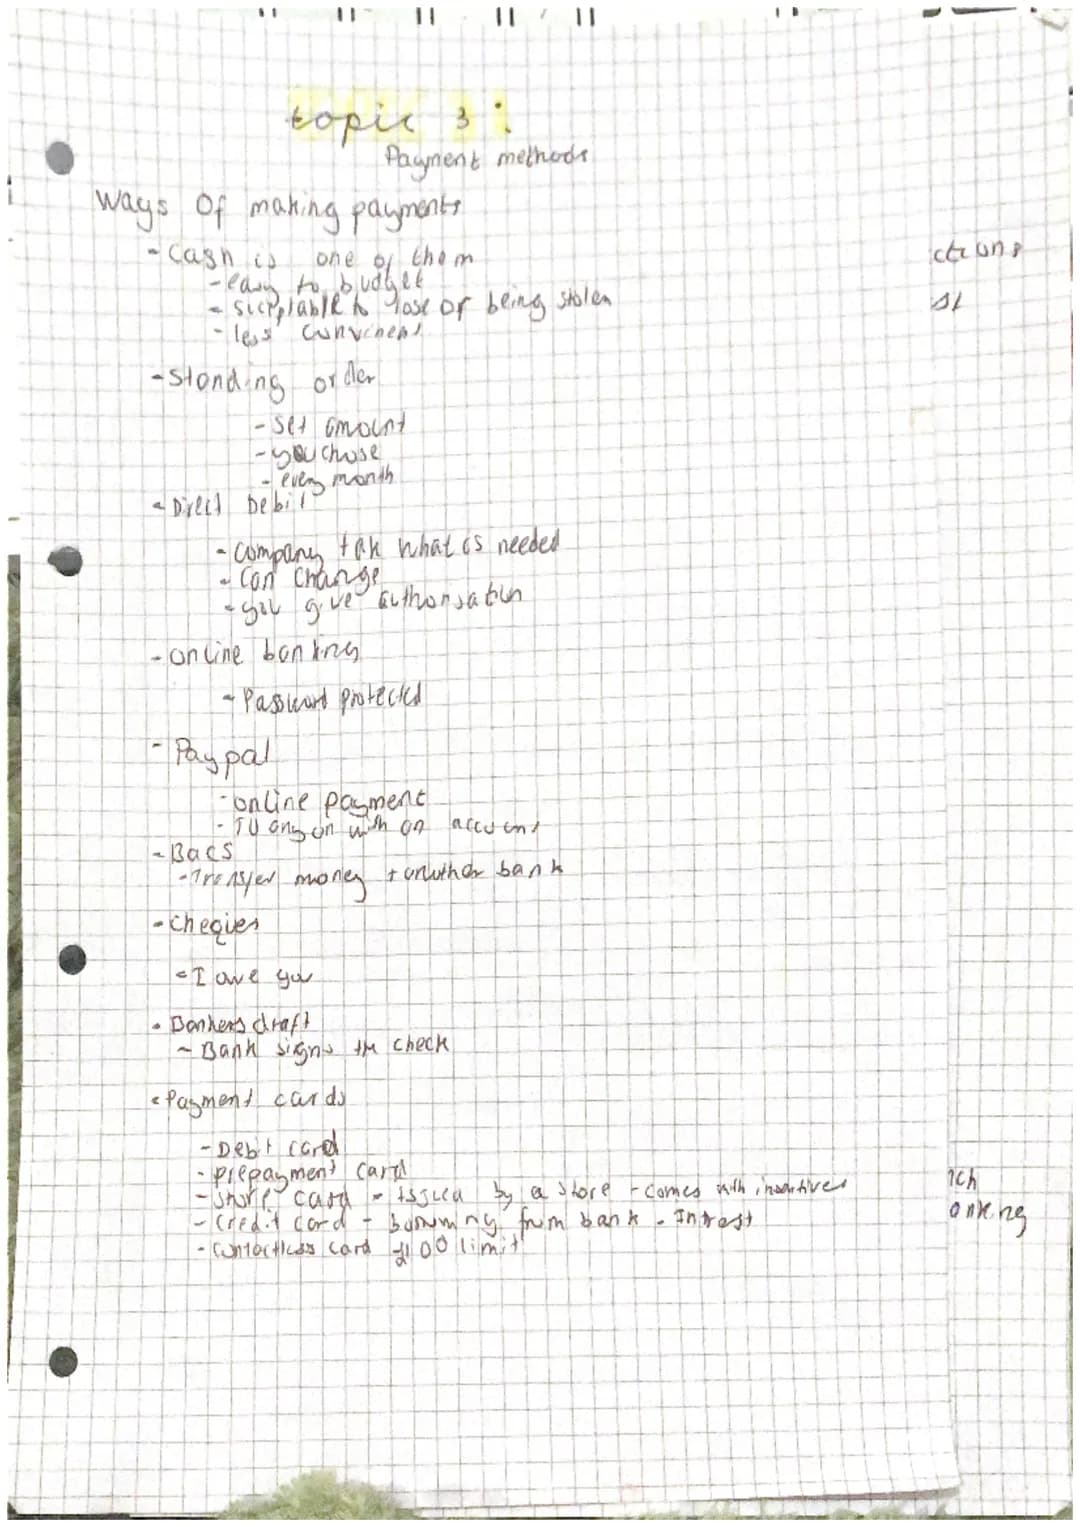 topic 3:
Payment methods
Ways Of making payments
- Cash is one of them
- easy to budget
- suceptable to lose or being stolen
- less convinent
- Standing order
- Set amount
- you chose
- every month
- Direct Debit
- Company tak what is needed
- Can Change
- you give authorisation
- online banking
- Password protected
- Paypal
- online payment
- TO anyon with an account
- Bacs
- Transfer money t another bank
- Cheques
- I owe you
- Bankers draft
- Bank signs the check
- Payment cards
- Debit card
- Prepayment card
- Store card - issued by a store - comes with insentives
- Credit card - borrowing from bank - Intrest
- Contactless card £100 limit
ctions
st
ich
anking